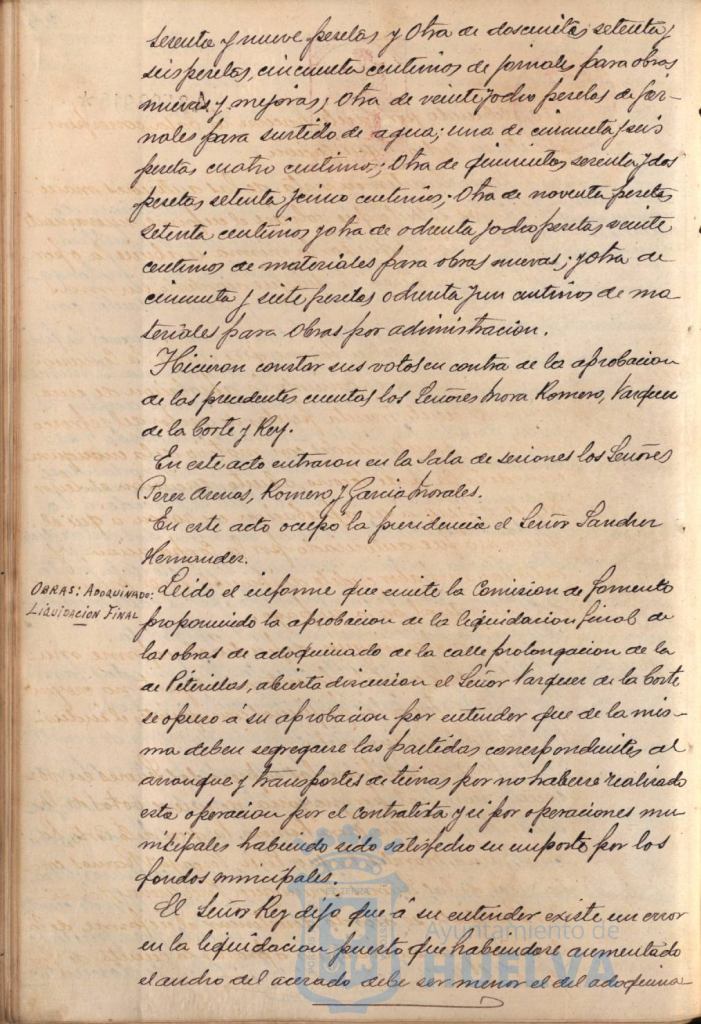 sesenta y nueve pesetas y otra de doscientas setenta y
seis pesetas, cincuenta centimos de jornales para obras
nuevas y mejoras; otra de veinte y ocho pesetas de jor-
nales para surtido de agua; una de cincuenta y seis
pesetas cuatro centimos; otra de quinientas sesenta y dos
pesetas setenta y cinco centimos; otra de noventa pesetas
setenta centimos y otra de ochenta y ocho pesetas veinte
centimos de materiales para obras nuevas; y otra de
cincuenta y siete pesetas ochenta y un centimos de ma
teriales para obras por administracion.
Hicieron constar sus votos en contra de la aprobacion
de las precedentes cuentas los Señores Mora Romero, Vazquez
de la Corte y Rey.
En este acto entraron en la sala de sesiones los Señores
Perez Arenas, Romero y Garcia Morales.
En este acto ocupó la presidencia el Señor Sanchez
Hernandez.
OBRAS: ADOQUINADO:
LIQUIDACION FINAL
Leido el informe que emite la Comision de fomento
proponiendo la aprobacion de la liquidacion final de
las obras de adoquinado de la calle prolongacion de la
de abierta discusion el Señor Vazquez de la Corte
se opuso á su aprobacion por entender que de la mis-
ma deben segregarse las partidas correspondientes al
arranque y transportes de tierras por no haberse realizado
esta operacion por el contratista y si por operaciones mu
nicipales habiendo sido satisfecho su importe por los
fondos municipales.
El Señor Rey dijo que á su entender existe un error
en la liquidacion puesto que habiendose aumentado
el ancho del acerado debe ser menor el del adoquina
Ayuntamiento de
HUELVA